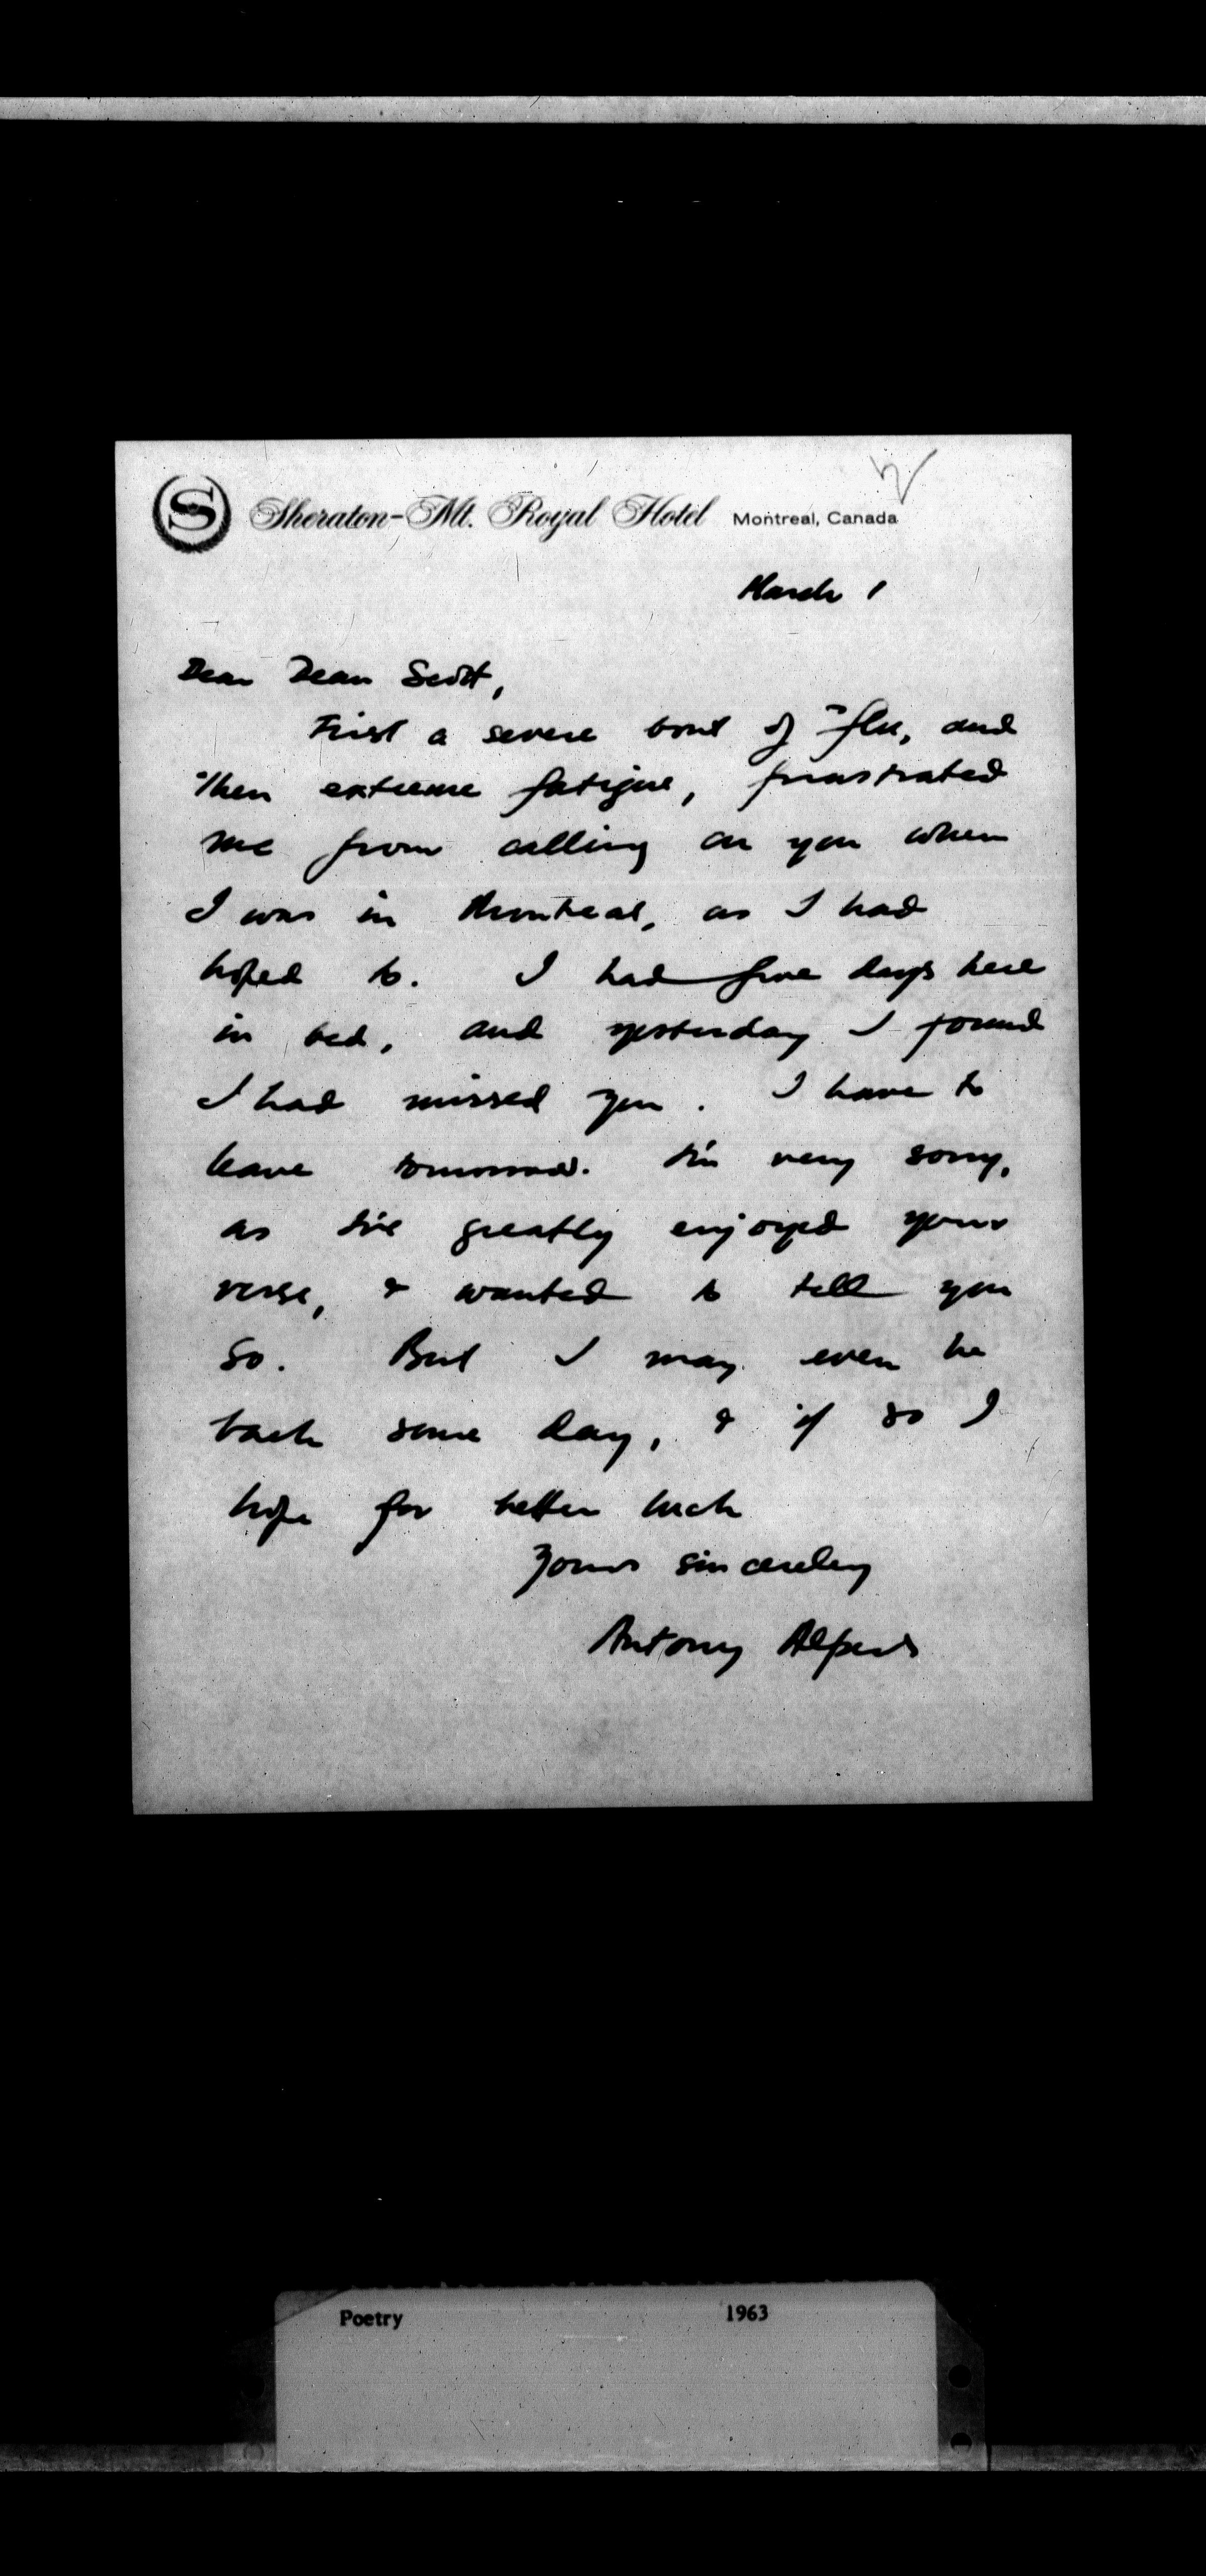 S Sheraton-Mt. Royal Hotel Montreal, Canada
March 1
Dear Dean Scott,
First a severe bout of 'flu, and
then extreme fatigue, frustrated
me from calling on you when
I was in Montreal, as I had
hoped to. I had five days here
in bed, and yesterday I found
I had missed you. I have to
leave tomorrow. I'm very sorry,
as I've greatly enjoyed your
verse, & wanted to tell you
so. But I may even be
back some day, & if so I
hope for better luck
Yours sincerely
Antony Alpers
Poetry 1963